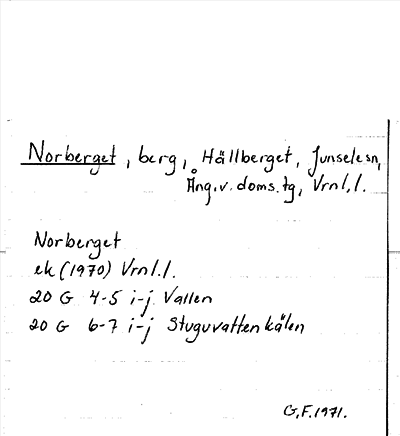 Norberget, berg, Hällberget, Junselesn,
Ång.v. doms.tg, Vrnl.l.
Norberget
ek (1970) Vrnl.l.
20 G 4-5 i-j Vallen
20 G 6-7 i-j Stuguvattenkälen
G.F. 1971.